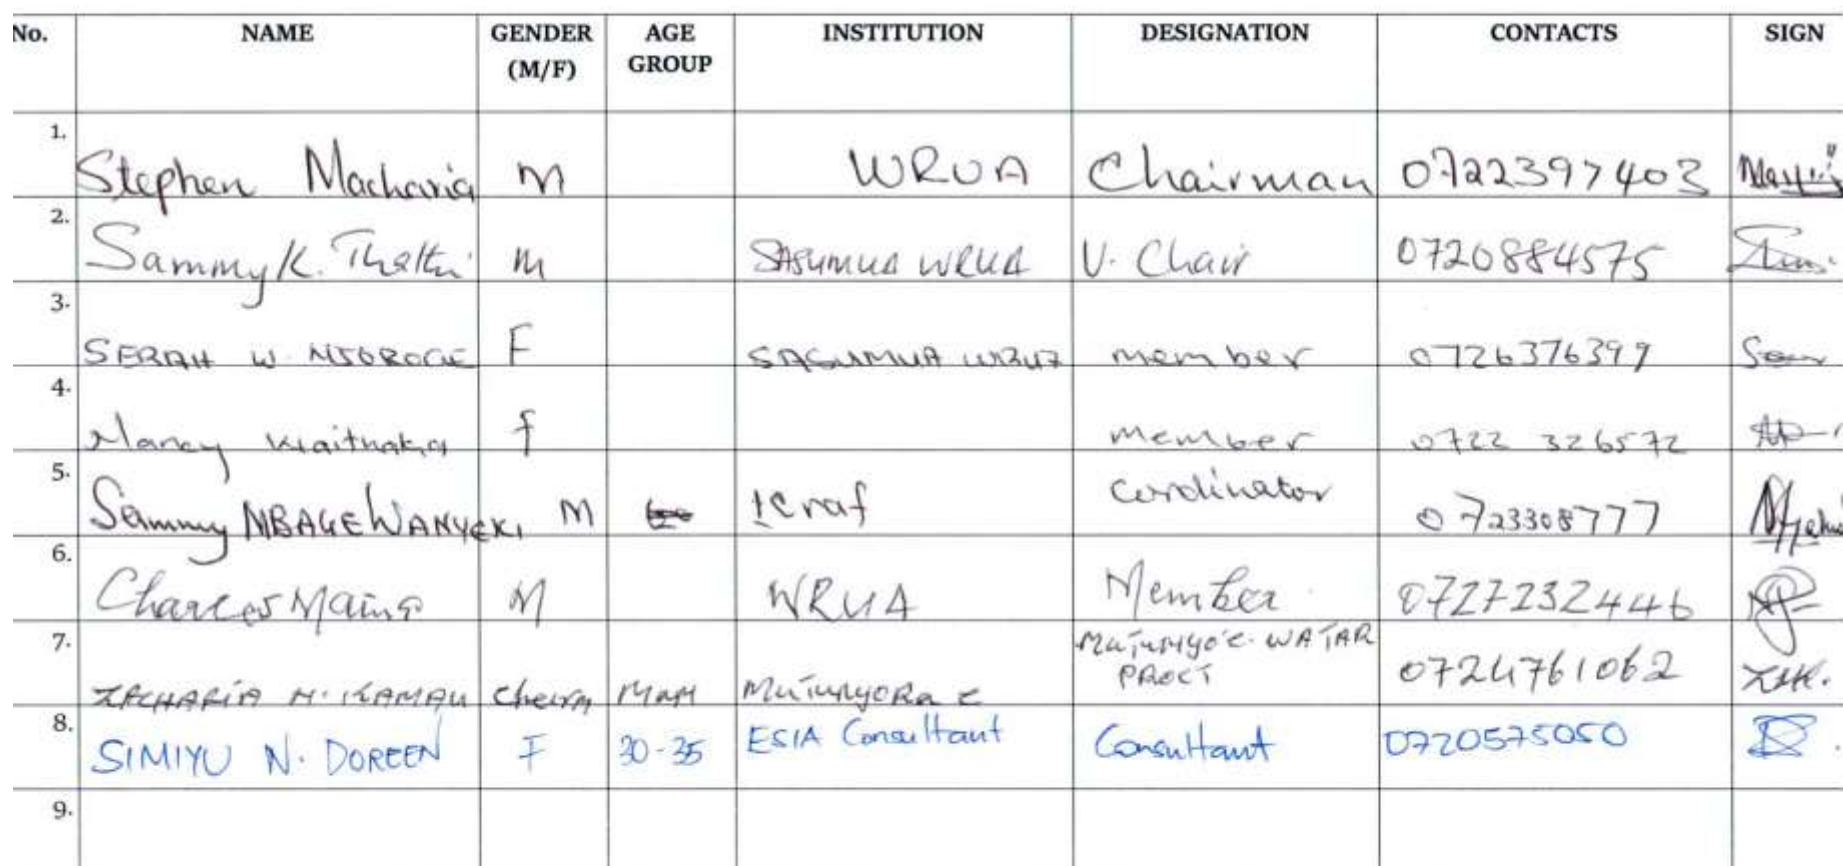 No. NAME GENDER (M/F) AGE GROUP INSTITUTION DESIGNATION CONTACTS SIGN
1. Stephen Macharia M WRUA Chairman 0722397403
2. Sammy K. M SASUMUA WRUA V. Chair 0720884575
3. SERAH W. NJOROGE F SASUMUA WRUA member 0726376399
4. Nancy f member 0722 326572
5. Sammy MBAGE WANYEKI M ICraf Cordinator 0723308777
6. Charles Maina M WRUA Member 0727232446
7. ZACHARIA N. KAMAU Cheirm MAN WATAR PROCT 0724761062 ZHK.
8. SIMIYU N. DOREEN F 30-35 ESIA Consultant Consultant 0720575050
9.